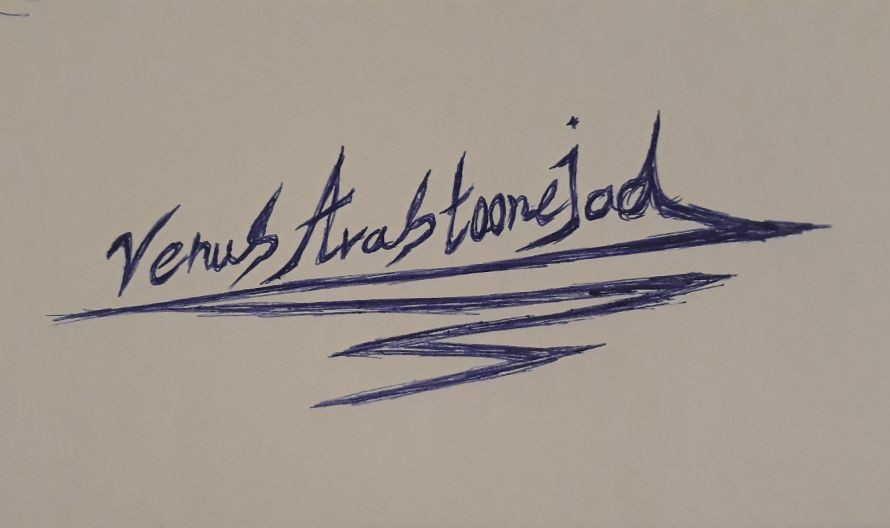 Venus Arastoonejad